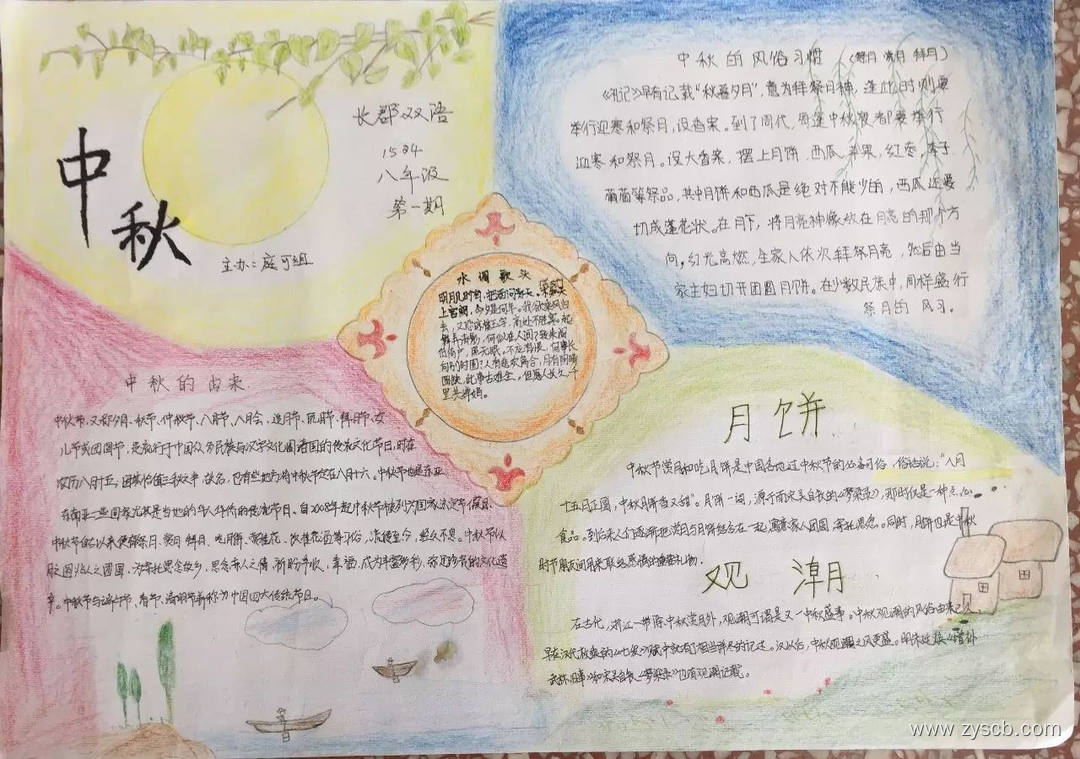 中秋
长郡双语
1504
八年级
第一期
主办：庭可组
中秋的风俗习惯（祭月 赏月 拜月）
《礼记》早有记载“秋暮夕月”，意为拜祭月神，逢此时则要
举行迎寒和祭月，设香案。到了周代，每逢中秋夜都要举行
迎寒和祭月。设大香案，摆上月饼、西瓜、苹果，红枣，李子
葡萄等祭品，其中月饼和西瓜是绝对不能少的，西瓜还要
切成莲花状。在月下，将月亮神像放在月亮的那个方
向，红光高燃，全家人依次拜祭月亮，然后由当
家主妇切开团圆月饼。在少数民族中，同样盛行
祭月的 风习。
水调歌头
明月几时有，把酒问青天。不知天
上宫阙，今夕是何年。我欲乘风归
去，又恐琼楼玉宇，高处不胜寒。起
舞弄清影，何似在人间？转朱阁
低绮户，照无眠。不应有恨，何事长
向别时圆？人有悲欢离合，月有阴晴
圆缺，此事古难全。但愿人长久，千
里共婵娟。
中秋的由来
中秋节，又称夕月、秋节、仲秋节、八月节、八月会、追月节、玩月节、拜月节、女
儿节或团圆节，是流行于中国众多民族与汉字文化圈诸国的传统文化节日，时在
农历八月十五；因其恰值三秋之半，故名，也有些地方将中秋节定在八月十六。中秋节也是东亚
在南亚一些国家尤其是当地的华人华侨的传统节日。自2008年起中秋节被列为国家法定节假日。
中秋节自古以来便有祭月、赏月、拜月、吃月饼、赏桂花、饮桂花酒等习俗，流传至今，经久不息。中秋节以
月之圆兆人之团圆，为寄托思念故乡，思念亲人之情，祈盼丰收、幸福，成为丰富多彩，弥足珍贵的文化遗
产。中秋节与端午节、春节、清明节并称为中国四大传统节日。
月饼
中秋节赏月和吃月饼是中国各地过中秋节的必备习俗，俗话说：“八月
十五月正圆，中秋月饼香又甜”。月饼一词，源于南宋吴自牧的《梦梁录》，那时仅是一种点心
食品。到后来人们逐渐把赏月与月饼结合在一起，寓意家人团圆，寄托思念。同时，月饼也是中秋
时节朋友间用来联络感情的重要礼物。
观 潮
在古代，浙江一带除中秋赏月外，观潮可谓是又一中秋盛事。中秋观潮的风俗由来已久，
早在汉代枚乘的《七发》赋中就有了相当详尽的记述。汉以后，中秋观潮之风更盛。明朱廷焕《增补
武林旧事》和宋吴自牧《梦梁录》也有观潮记载。
www.zyscb.com